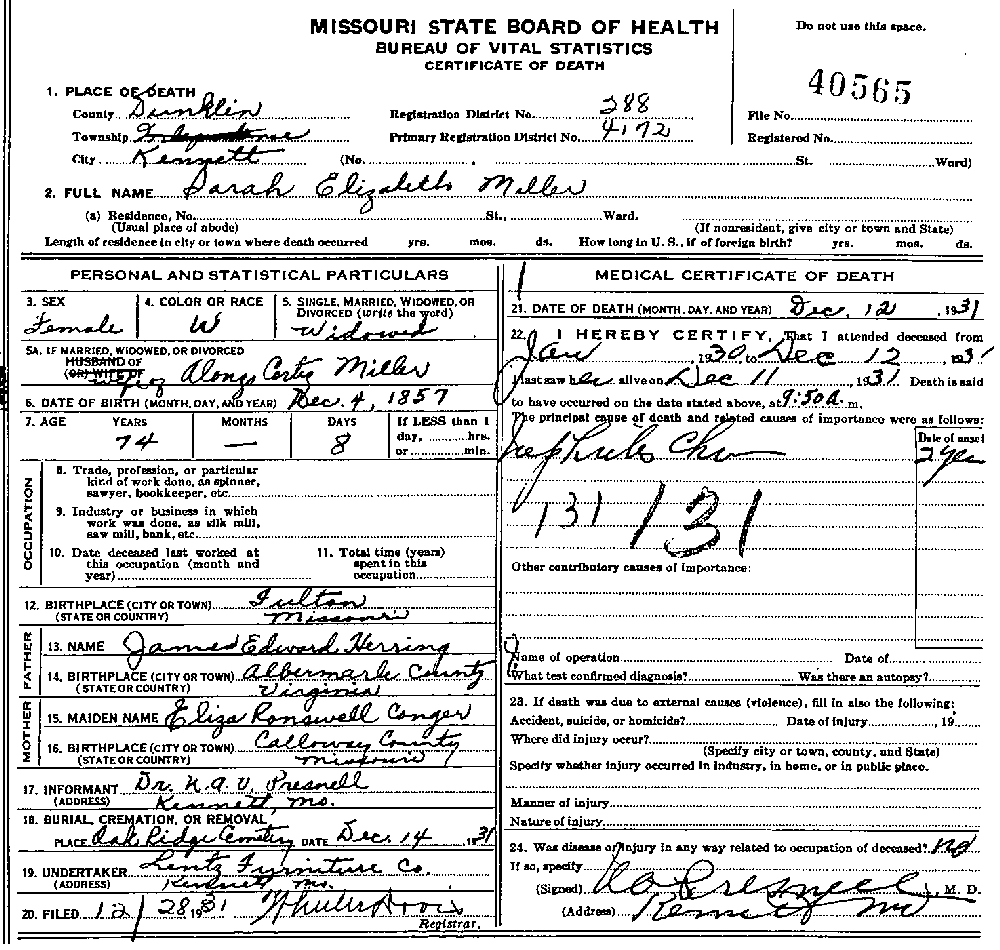 MISSOURI STATE BOARD OF HEALTH
BUREAU OF VITAL STATISTICS
CERTIFICATE OF DEATH
Do not use this space.
40565
1. PLACE OF DEATH
County Dunklin Registration District No. 288 File No.
Township Independence Primary Registration District No. 4172 Registered No.
City Kennett (No. , St. Ward)
2. FULL NAME Sarah Elizabeth Miller
(a) Residence, No. St., Ward.
(Usual place of abode) (If nonresident, give city or town and State)
Length of residence in city or town where death occurred yrs. mos. ds. How long in U. S., if of foreign birth? yrs. mos. ds.
PERSONAL AND STATISTICAL PARTICULARS
3. SEX 4. COLOR OR RACE 5. SINGLE, MARRIED, WIDOWED, OR
DIVORCED (write the word)
Female W Widowed
5A. IF MARRIED, WIDOWED, OR DIVORCED
HUSBAND OF
(OR) WIFE OF Alonzo Cortez Miller
6. DATE OF BIRTH (MONTH, DAY, AND YEAR) Dec. 4, 1857
7. AGE YEARS MONTHS DAYS If LESS than 1
day, hrs.
or min.
74 — 8
OCCUPATION
8. Trade, profession, or particular
kind of work done, as spinner,
sawyer, bookkeeper, etc.
9. Industry or business in which
work was done, as silk mill,
saw mill, bank, etc.
10. Date deceased last worked at
this occupation (month and
year)
11. Total time (years)
spent in this
occupation
12. BIRTHPLACE (CITY OR TOWN) Fulton
(STATE OR COUNTRY) Missouri
FATHER
13. NAME James Edward Herring
14. BIRTHPLACE (CITY OR TOWN) Albermarle County
(STATE OR COUNTRY) Virginia
MOTHER
15. MAIDEN NAME Eliza Conger
16. BIRTHPLACE (CITY OR TOWN) Calloway County
(STATE OR COUNTRY) Missouri
17. INFORMANT Dr. Presnell
(ADDRESS) Kennett, Mo.
18. BURIAL, CREMATION, OR REMOVAL
PLACE Oak Ridge Cemetery DATE Dec. 14 1931
19. UNDERTAKER Lentz Furniture Co.
(ADDRESS) Kennett Mo.
20. FILED 12/28 1931
Registrar.
MEDICAL CERTIFICATE OF DEATH
21. DATE OF DEATH (MONTH, DAY, AND YEAR) Dec. 12 , 1931
22. I HEREBY CERTIFY, That I attended deceased from
Jan , 1930 to Dec 12 , 1931
I last saw her alive on Dec 11 , 1931 Death is said
to have occurred on the date stated above, at 9:50 a. m.
The principal cause of death and related causes of importance were as follows:
Date of onset
Nephritis Chr 2 year
131 131
Other contributory causes of importance:
Name of operation Date of
What test confirmed diagnosis? Was there an autopsy?
23. If death was due to external causes (violence), fill in also the following:
Accident, suicide, or homicide? Date of injury , 19
Where did injury occur?
(Specify city or town, county, and State)
Specify whether injury occurred in industry, in home, or in public place.
Manner of injury
Nature of injury
24. Was disease or injury in any way related to occupation of deceased? no
If so, specify
(Signed) Presnell , M. D.
(Address) Kennett Mo